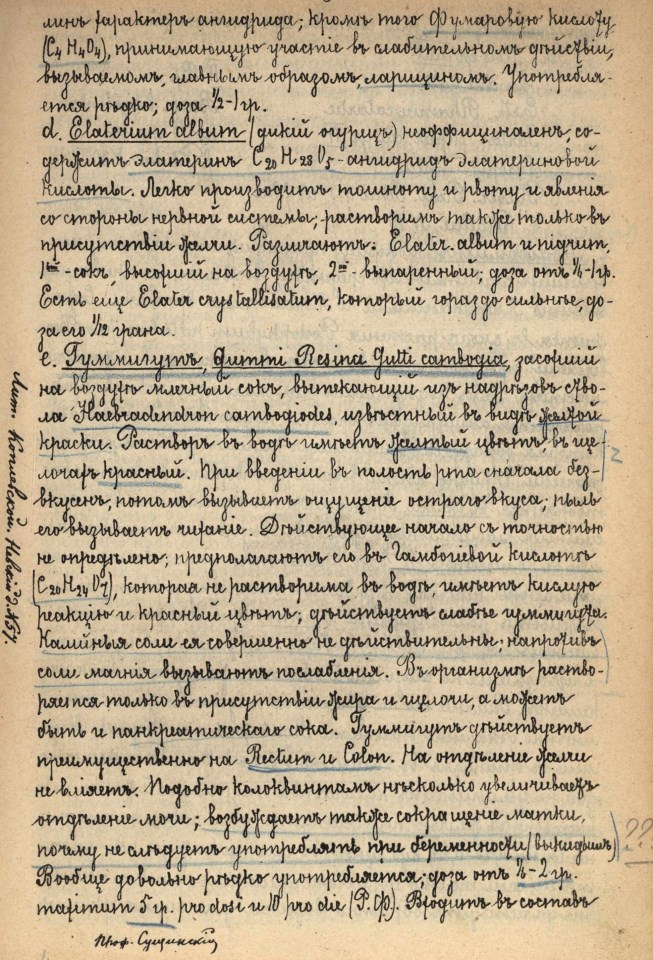 линъ характеръ ангидрида; кромѣ того Фумаровую кислоту
(C4 H4 O4), принимающую участіе въ слабительномъ дѣйствіи,
вызываемомъ, главнымъ образомъ, ларициномъ. Употребля-
ется рѣдко; доза 1/2-1 гр.
d. Elaterium album (дикій огурецъ) неоффициналенъ, со-
держитъ элатеринъ C20 H28 O5 - ангидридъ элатериновой
кислоты. Легко производитъ тошноту и рвоту и явленія
со стороны нервной системы; растворимъ также только въ
присутствіи желчи. Различаютъ: Elater. album и nigrum,
1ый - сокъ, высохшій на воздухѣ, 2ой - выпаренный; доза отъ 1/4-1 гр.
Есть еще Elater crystallisatum, который гораздо сильнѣе, до-
за его 1/12 грана.
e. Гуммигутъ, Gummi Resina Gutti cambogia, засохшій
на воздухѣ млечный сокъ, вытекающій изъ надрѣзовъ ство-
ла Haebradendron cambogiodes, извѣстный въ видѣ желтой
краски. Растворъ въ водѣ имѣетъ желтый цвѣтъ, въ ще-
лочахъ красный. При введеніи въ полость рта сначала без-
вкусенъ, потомъ вызываетъ ощущеніе остраго вкуса; пыль
его вызываетъ чиханіе. Дѣйствующее начало съ точностью
не опредѣлено; предполагаютъ его въ Гамбогіевой кислотѣ
(C20 H24 O7), которая не растворима въ водѣ, имѣетъ кислую
реакцію и красный цвѣтъ; дѣйствуетъ слабѣе гуммигута.
Калійныя соли ея совершенно не дѣйствительны; напротивъ
соли магнія вызываютъ послабленія. Въ организмѣ раство-
ряется только въ присутствіи жира и щелочи, а можетъ
быть и панкреатическаго сока. Гуммигутъ дѣйствуетъ
преимущественно на Rectum и Colon. На отдѣленіе желчи
не вліяетъ. Подобно колоквинтамъ нѣсколько увеличиваетъ
отдѣленіе мочи; возбуждаетъ также сокращеніе матки,
почему не слѣдуетъ употреблять при беременности (выкидышъ)
??
Вообще довольно рѣдко употребляется; доза отъ 1/2 - 2 гр.
maximum 5 гр. pro dosi и 10 pro die (Р. Ф.). Входитъ въ составъ
Проф. Сущинскій
Лит. Копаевской. Невскій д. №57.